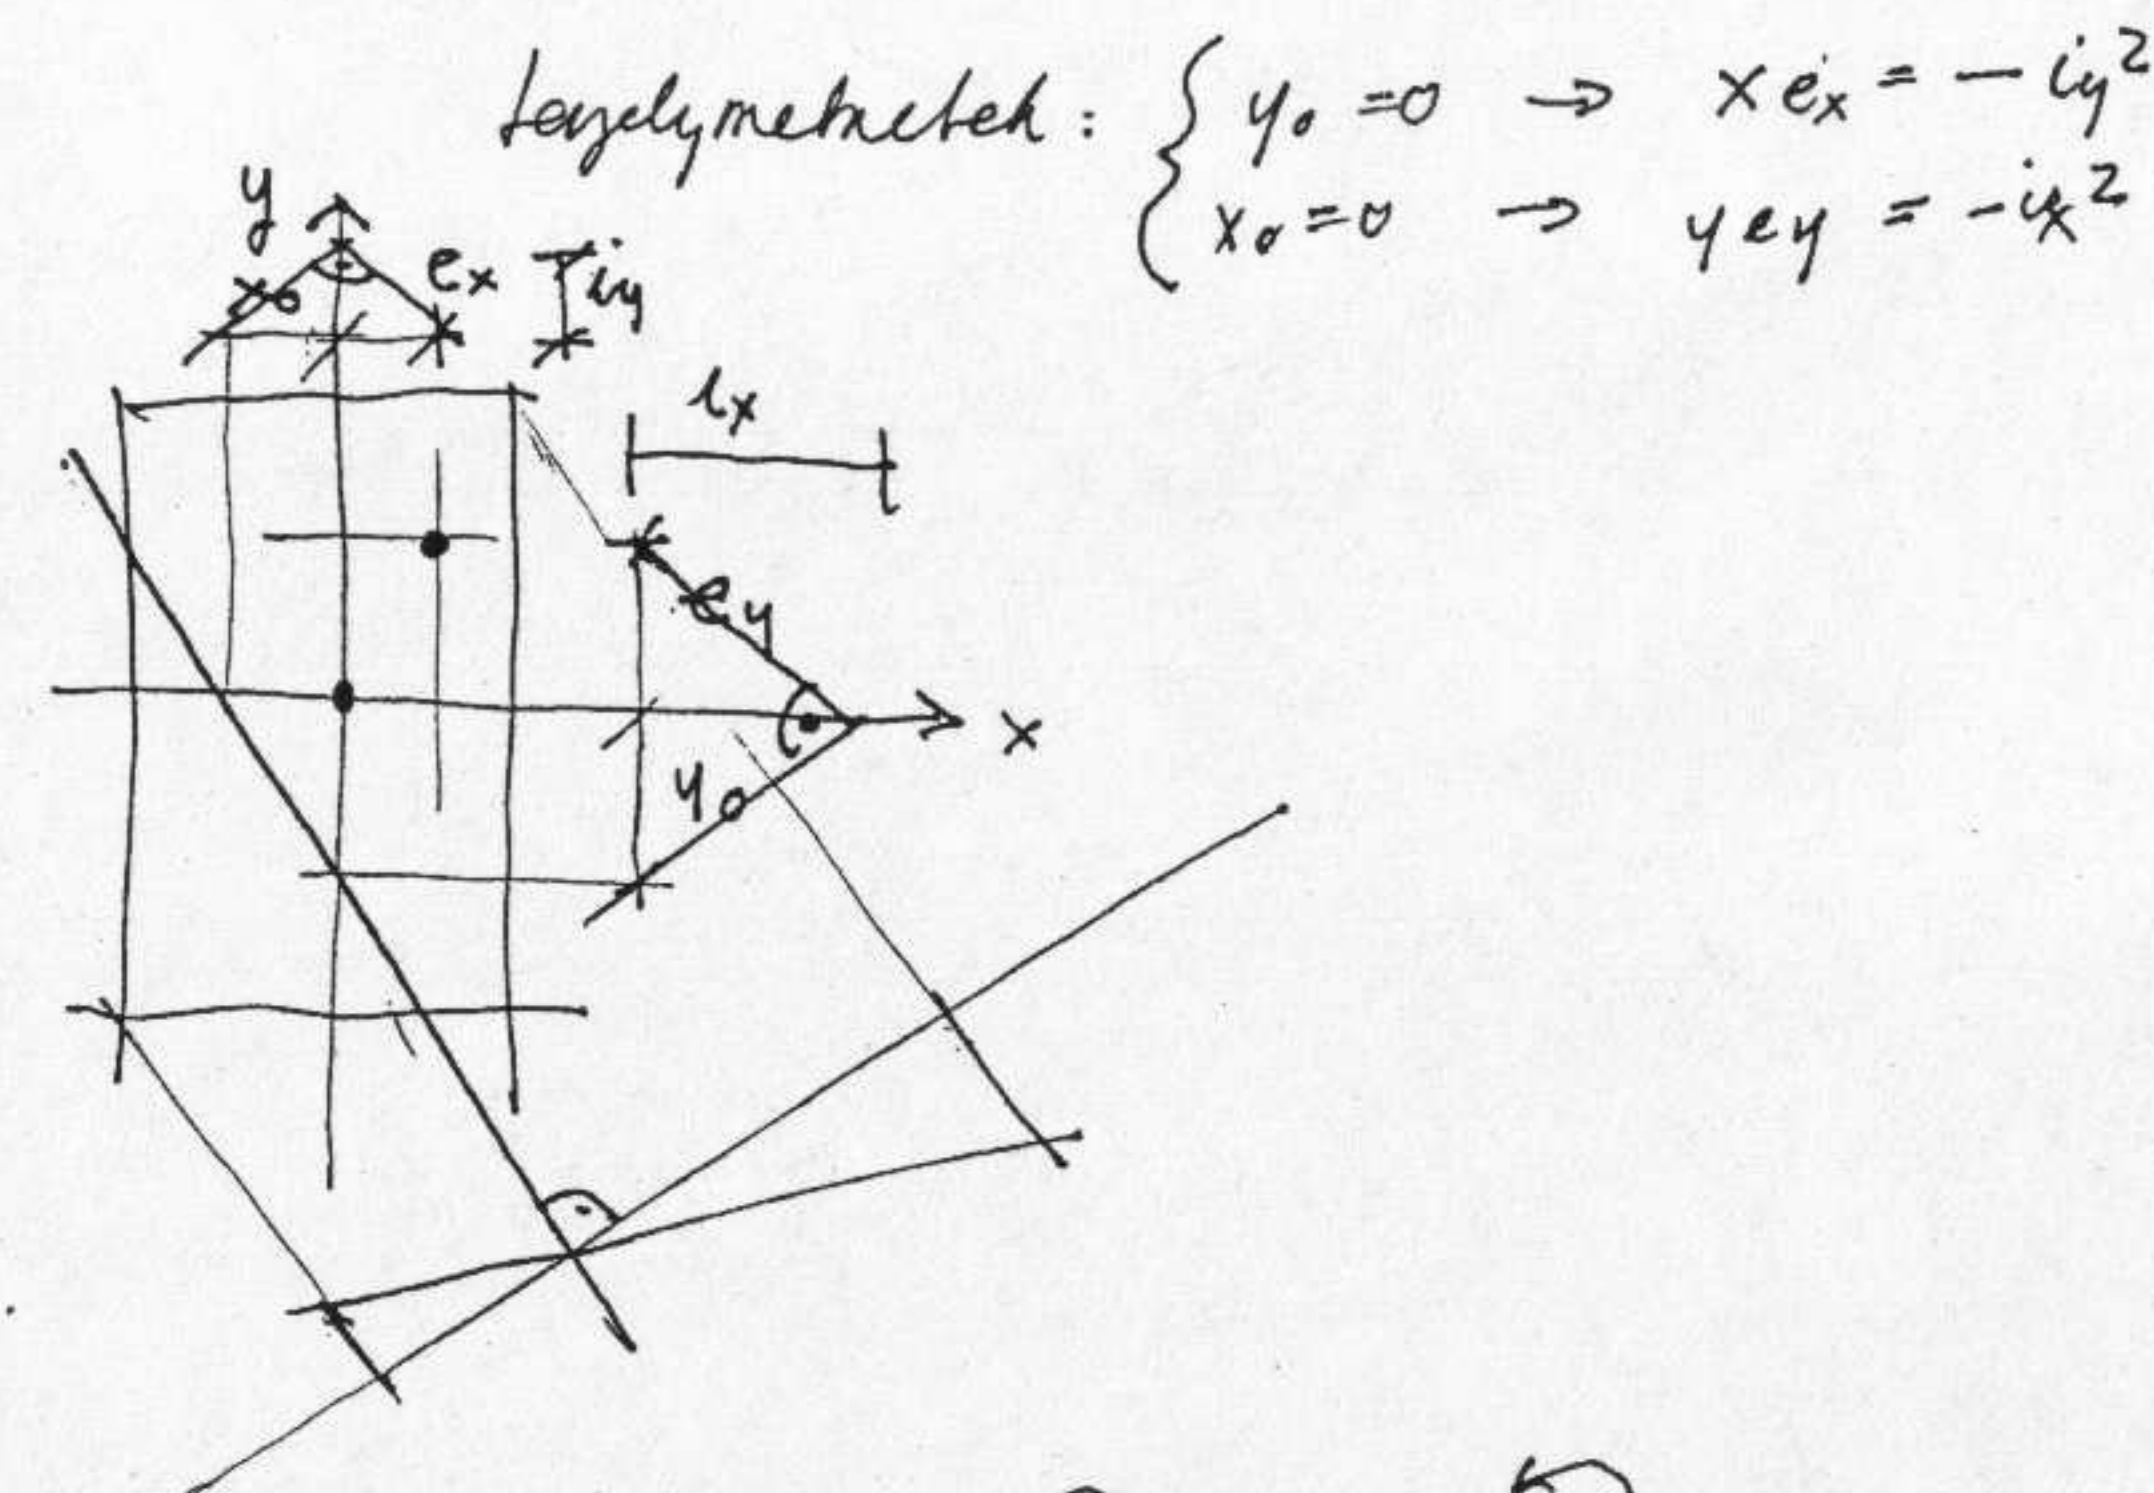 tengelymetszetek : { y₀ = 0 → x eₓ = - i_y²
x₀ = 0 → y e_y = - i_x²
y
x₀ eₓ i_y
i_x
e_y
x
y₀